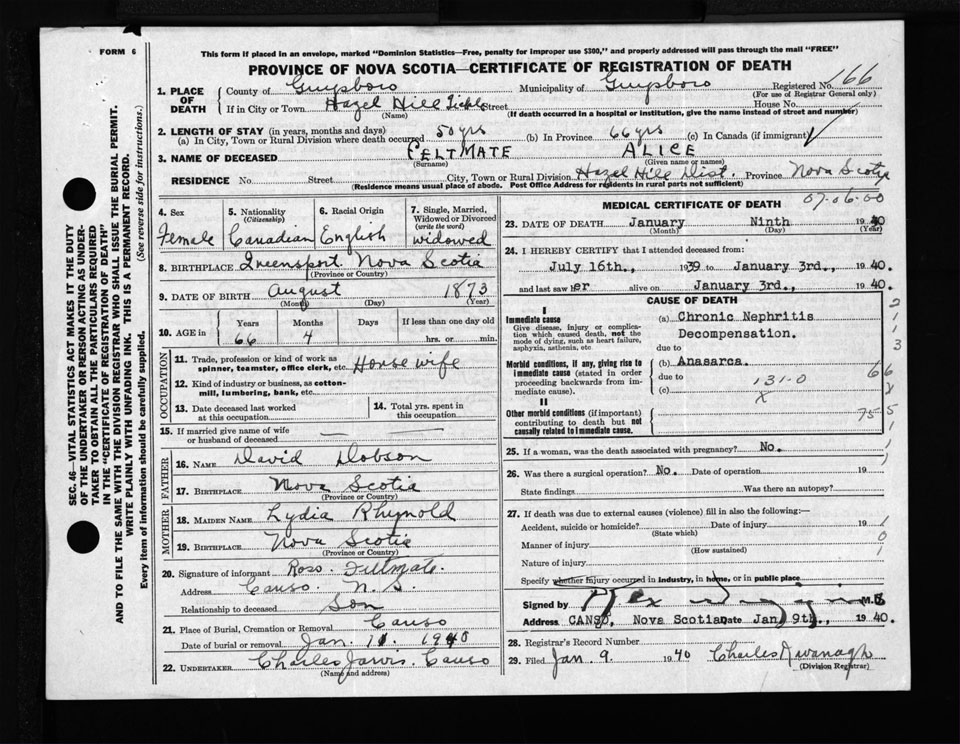 FORM 6
This form if placed in an envelope, marked "Dominion Statistics—Free, penalty for improper use $300," and properly addressed will pass through the mail "FREE"
PROVINCE OF NOVA SCOTIA—CERTIFICATE OF REGISTRATION OF DEATH
1. PLACE OF DEATH County of Guysboro Municipality of Guysboro Registered No. 166
(For use of Registrar General only)
If in City or Town Hazel Hill Street House No.
(Name) (If death occurred in a hospital or institution, give the name instead of street and number)
2. LENGTH OF STAY (in years, months and days)
(a) In City, Town or Rural Division where death occurred 50 yrs (b) In Province 66 yrs (c) In Canada (if immigrant)
3. NAME OF DECEASED FELTMATE ALICE
(Surname) (Given name or names)
RESIDENCE No. Street City, Town or Rural Division Hazel Hill Dist. Province Nova Scotia
(Residence means usual place of abode. Post Office Address for residents in rural parts not sufficient)
4. Sex Female
5. Nationality (Citizenship) Canadian
6. Racial Origin English
7. Single, Married, Widowed or Divorced (write the word) widowed
8. BIRTHPLACE Queensport Nova Scotia
(Province or Country)
9. DATE OF BIRTH August 1873
(Month) (Day) (Year)
10. AGE in Years Months Days If less than one day old
66 4 hrs. or min.
OCCUPATION
11. Trade, profession or kind of work as spinner, teamster, office clerk, etc. House wife
12. Kind of industry or business, as cotton-mill, lumbering, bank, etc.
13. Date deceased last worked at this occupation
14. Total yrs. spent in this occupation
15. If married give name of wife or husband of deceased —
FATHER
16. NAME David Dobson
17. BIRTHPLACE Nova Scotia
(Province or Country)
MOTHER
18. MAIDEN NAME Lydia Rhynold
19. BIRTHPLACE Nova Scotia
(Province or Country)
20. Signature of informant Ross Feltmate
Address Canso N.S.
Relationship to deceased Son
21. Place of Burial, Cremation or Removal Canso
Date of burial or removal Jan. 11 1940
22. UNDERTAKER Charles Jarvis. Canso
(Name and address)
MEDICAL CERTIFICATE OF DEATH 07.06.00
23. DATE OF DEATH January Ninth 1940
(Month) (Day) (Year)
24. I HEREBY CERTIFY that I attended deceased from:
July 16th., 1939 to January 3rd., 1940.
and last saw her alive on January 3rd., 1940.
CAUSE OF DEATH
I
Immediate cause
Give disease, injury or complication which caused death, not the mode of dying, such as heart failure, asphyxia, asthenia, etc.
(a) Chronic Nephritis
Decompensation.
due to
Morbid conditions, if any, giving rise to immediate cause (stated in order proceeding backwards from immediate cause).
(b) Anasarca.
due to 131-0
(c) X
II
Other morbid conditions (if important) contributing to death but not causally related to immediate cause. 75
25. If a woman, was the death associated with pregnancy? No.
26. Was there a surgical operation? No. Date of operation 19
State findings Was there an autopsy?
27. If death was due to external causes (violence) fill in also the following:—
Accident, suicide or homicide? Date of injury 19
(State which)
Manner of injury
(How sustained)
Nature of injury
Specify whether injury occurred in industry, in home, or in public place
Signed by M.D.
Address CANSO, Nova Scotia Date Jan 9th., 1940.
28. Registrar's Record Number
29. Filed Jan. 9 1940 Charles Kavanagh
(Division Registrar)
SEC. 46—VITAL STATISTICS ACT MAKES IT THE DUTY
OF THE UNDERTAKER OR PERSON ACTING AS UNDER-
TAKER TO OBTAIN ALL THE PARTICULARS REQUIRED
IN THE "CERTIFICATE OF REGISTRATION OF DEATH"
AND TO FILE THE SAME WITH THE DIVISION REGISTRAR WHO SHALL ISSUE THE BURIAL PERMIT.
WRITE PLAINLY WITH UNFADING INK. THIS IS A PERMANENT RECORD.
Every item of information should be carefully supplied. (See reverse side for instructions.)